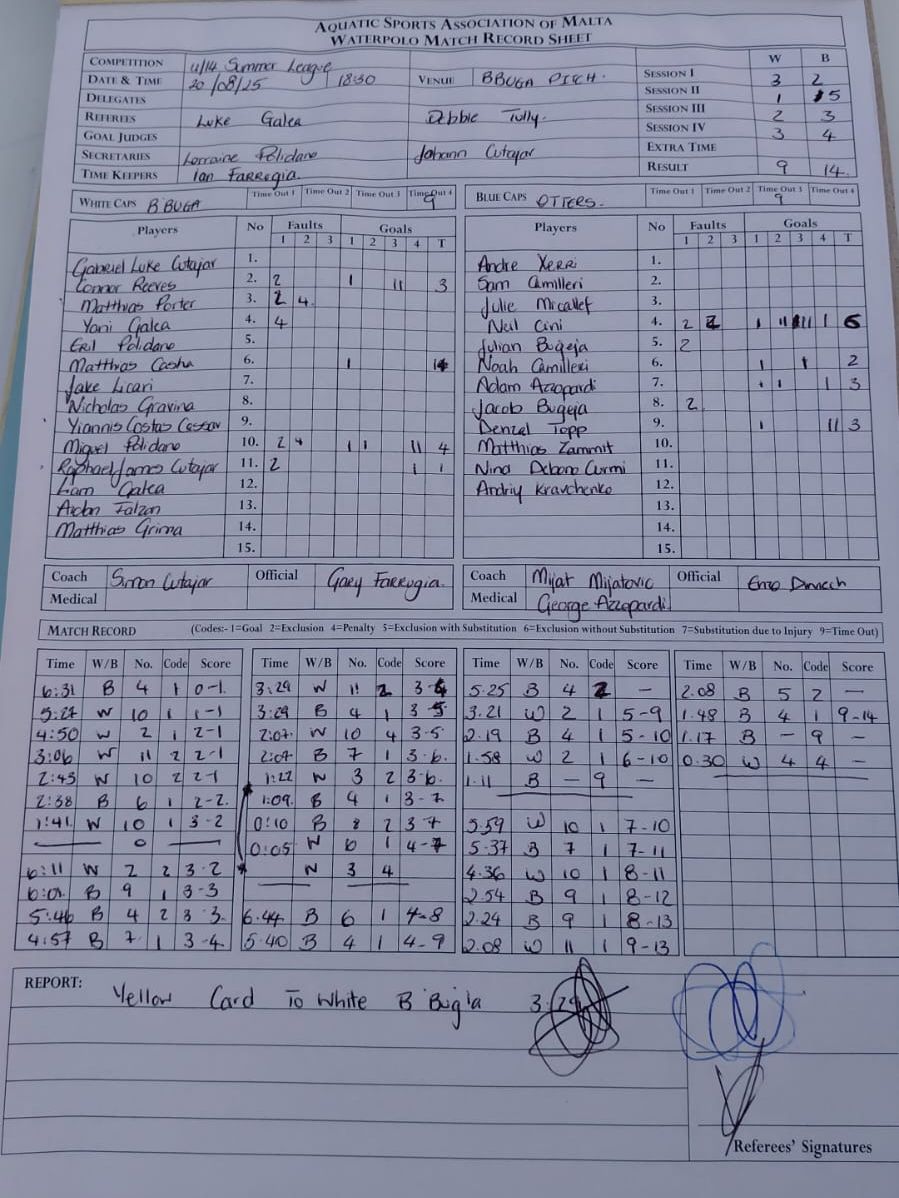 AQUATIC SPORTS ASSOCIATION OF MALTA
WATERPOLO MATCH RECORD SHEET
COMPETITION U/14 Summer League W B
DATE & TIME 20/08/25 18:30 VENUE BBUGA PITCH. SESSION I 3 2
DELEGATES SESSION II 1 5
REFEREES Luke Galea Debbie Tully. SESSION III 2 3
GOAL JUDGES SESSION IV 3 4
SECRETARIES Lorraine Polidano Johann Cutajar EXTRA TIME
TIME KEEPERS Ian Farrugia. RESULT 9 14.
WHITE CAPS B'BUGA Time Out 1 Time Out 2 Time Out 3 Time Out 4 9
BLUE CAPS OTTERS. Time Out 1 Time Out 2 Time Out 3 9 Time Out 4
Players No Faults Goals
1 2 3 1 2 3 4 T
Gabriel Luke Cutajar 1.
Connor Reeves 2. 2 1 11 3
Matthias Porter 3. 2 4.
Yani Galea 4. 4
Polidano 5.
Matthias Casha 6. 1
Jake Licari 7.
Nicholas Gravina 8.
Yiannis Costas Cassar 9.
Miguel Polidano 10. 2 4 1 1 11 4
Raphael James Cutajar 11. 2 1 1
Liam Galea 12.
Aidan Falzon 13.
Matthias Grima 14.
15.
Players No Faults Goals
1 2 3 1 2 3 4 T
Andre Xerri 1.
Sam Camilleri 2.
Julie Micallef 3.
Neil Cini 4. 2 2 1 11 111 1 6
Julian Bugeja 5. 2
Noah Camilleri 6. 1 1 2
Adam Azzopardi 7. 1 1 1 3
Jacob Bugeja 8. 2
Denzel Topp 9. 1 11 3
Matthias Zammit 10.
Nina Debono Curmi 11.
Andriy Kravchenko 12.
13.
14.
15.
Coach Simon Cutajar Official Gary Farrugia.
Medical
Coach Mijat Mijatovic Official Enzo
Medical George Azzopardi
MATCH RECORD (Codes:- 1=Goal 2=Exclusion 4=Penalty 5=Exclusion with Substitution 6=Exclusion without Substitution 7=Substitution due to Injury 9=Time Out)
Time W/B No. Code Score
6:31 B 4 1 0-1.
5:27 W 10 1 1-1
4:50 W 2 1 2-1
3:06 W 11 2 2-1
2:45 W 10 2 2-1
2:38 B 6 1 2-2.
1:41. W 10 1 3-2
6:11 W 2 2 3-2
6:01. B 9 1 3-3
5:46 B 4 2 3 3.
4:57 B 7. 1 3-4
Time W/B No. Code Score
3:29 W 11 2 3-4
3:29 B 4 1 3 5
2:07. W 10 4 3-5
2:07. B 7 1 3-6.
1:22 W 3 2 3-6.
1:09. B 4 1 3-7
0:10 B 8 2 3-7
0:05 W 6 1 4-7
W 3 4
6.44 B 6 1 4-8
5.40 B 4 1 4-9
Time W/B No. Code Score
5.25 B 4 2 —
3.21 W 2 1 5-9
2.19 B 4 1 5-10
1.58 W 2 1 6-10
1.11 B — 9 —
5.59 W 10 1 7-10
5.37 B 7 1 7-11
4.36 W 10 1 8-11
2.54 B 9 1 8-12
2.24 B 9 1 8-13
2.08 W 11 1 9-13
Time W/B No. Code Score
2.08 B 5 2 —
1.48 B 4 1 9-14
1.17 B — 9 —
0.30 W 4 4 —
REPORT: Yellow Card To White B'Bugia
Referees' Signatures